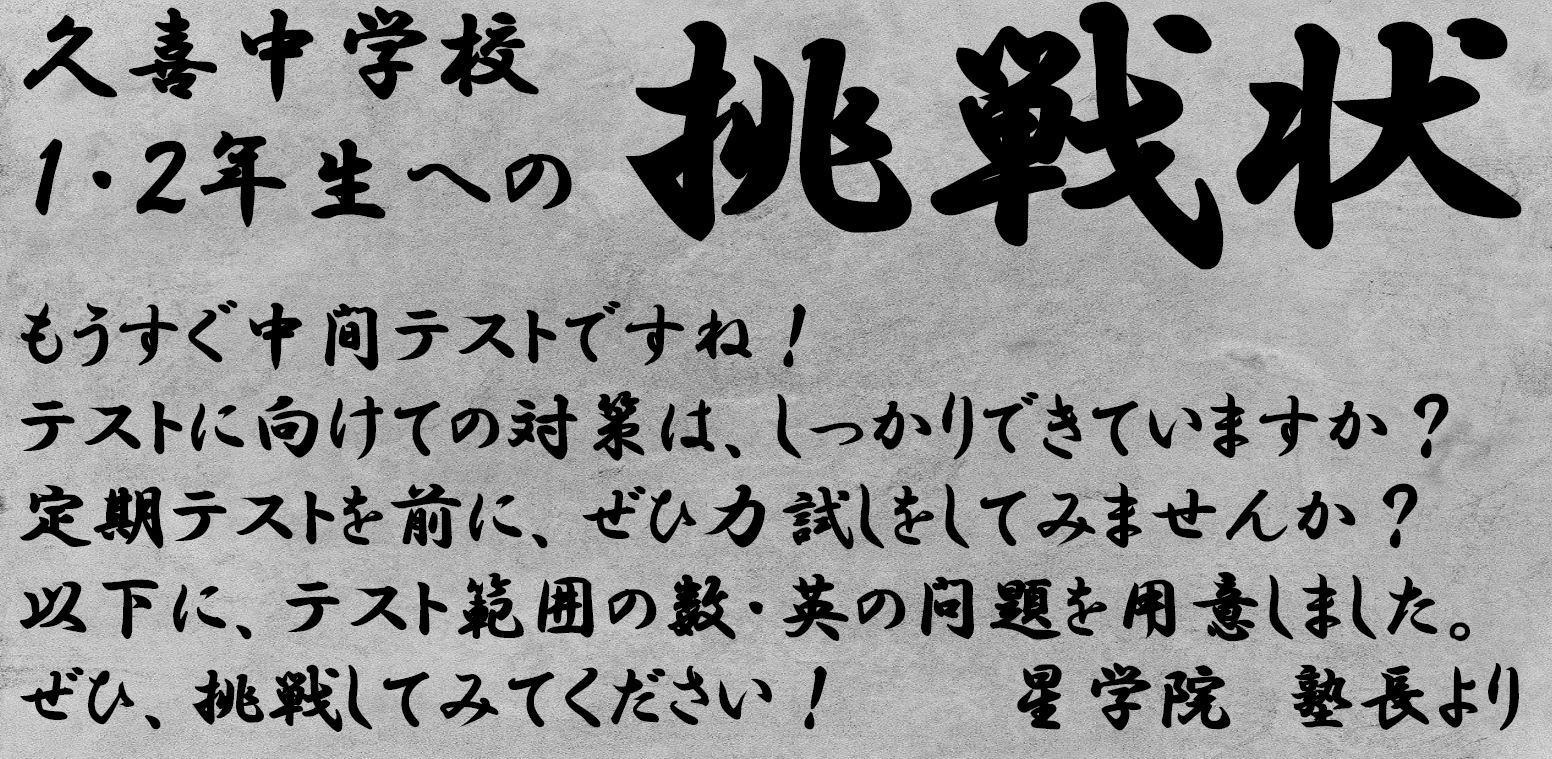 久喜中学校
1・2年生への
挑戦状
もうすぐ中間テストですね!
テストに向けての対策は、しっかりできていますか?
定期テストを前に、ぜひ力試しをしてみませんか?
以下に、テスト範囲の数・英の問題を用意しました。
ぜひ、挑戦してみてください! 星学院 塾長より